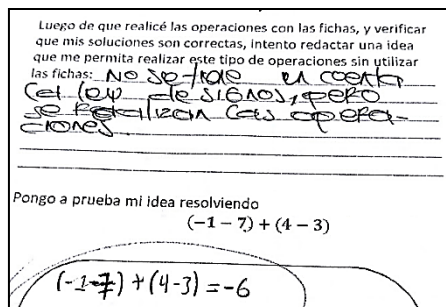 Luego de que realicé las operaciones con las fichas, y verificar
que mis soluciones son correctas, intento redactar una idea
que me permita realizar este tipo de operaciones sin utilizar
las fichas: No se trae en coenta
la ley de SIGNOS, pero
se realizan las opera-
ciones
Pongo a prueba mi idea resolviendo
(−1 − 7) + (4 − 3)
(-1-7) + (4-3) = -6